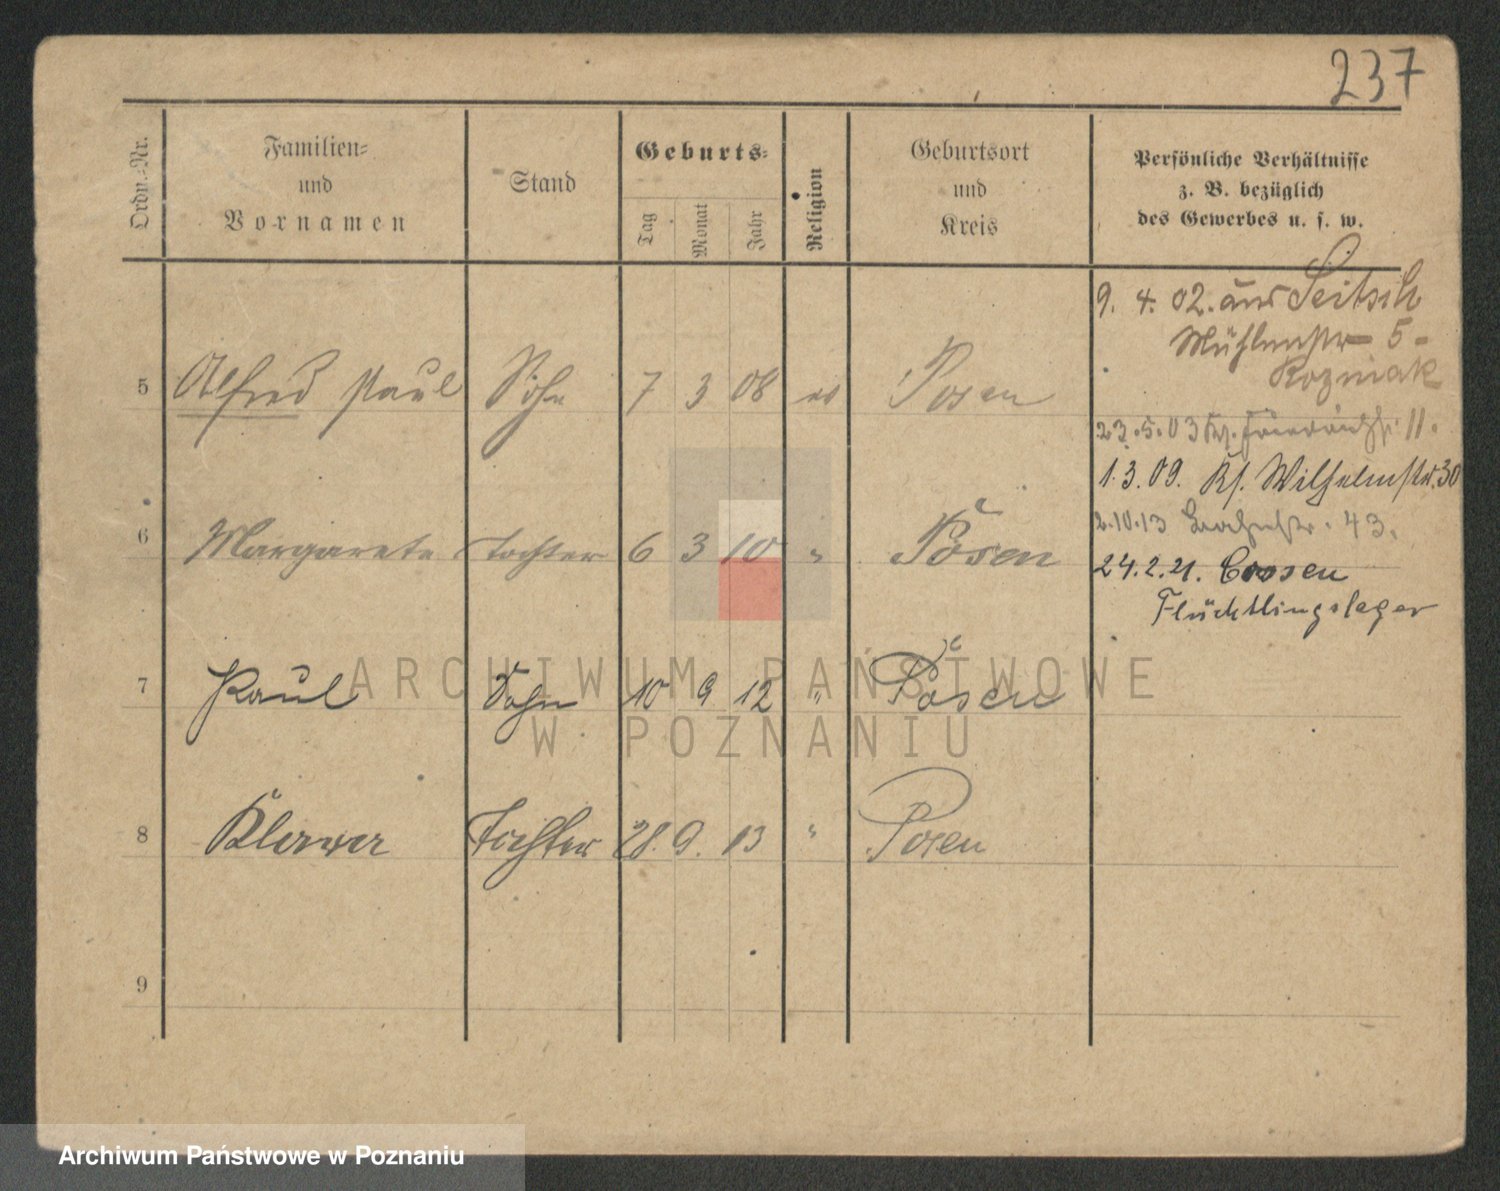 237
Ordn.-Nr.
Familien-
und
Vornamen
Stand
Geburts-
Tag
Monat
Jahr
Religion
Geburtsort
und
Kreis
Persönliche Verhältnisse
z. B. bezüglich
des Gewerbes u. s. w.
9. 4. 02. aus Seitsch
Mühlenstr 5-
Kozniak
5 Alfred Paul Sohn 7 3 08 ev Posen
23.5.03 11.
1.3.09. Ks. Wilhelmstr. 30
2.10.13 43.
6 Margarete Tochter 6 3 10 " Posen
24.2.21. Crossen
Flüchtlingslager
7 Paul Sohn 10 9 12 " Posen
8 Klara Tochter 28. 9. 13 " Posen
9
ARCHIWUM PAŃSTWOWE
W POZNANIU
Archiwum Państwowe w Poznaniu